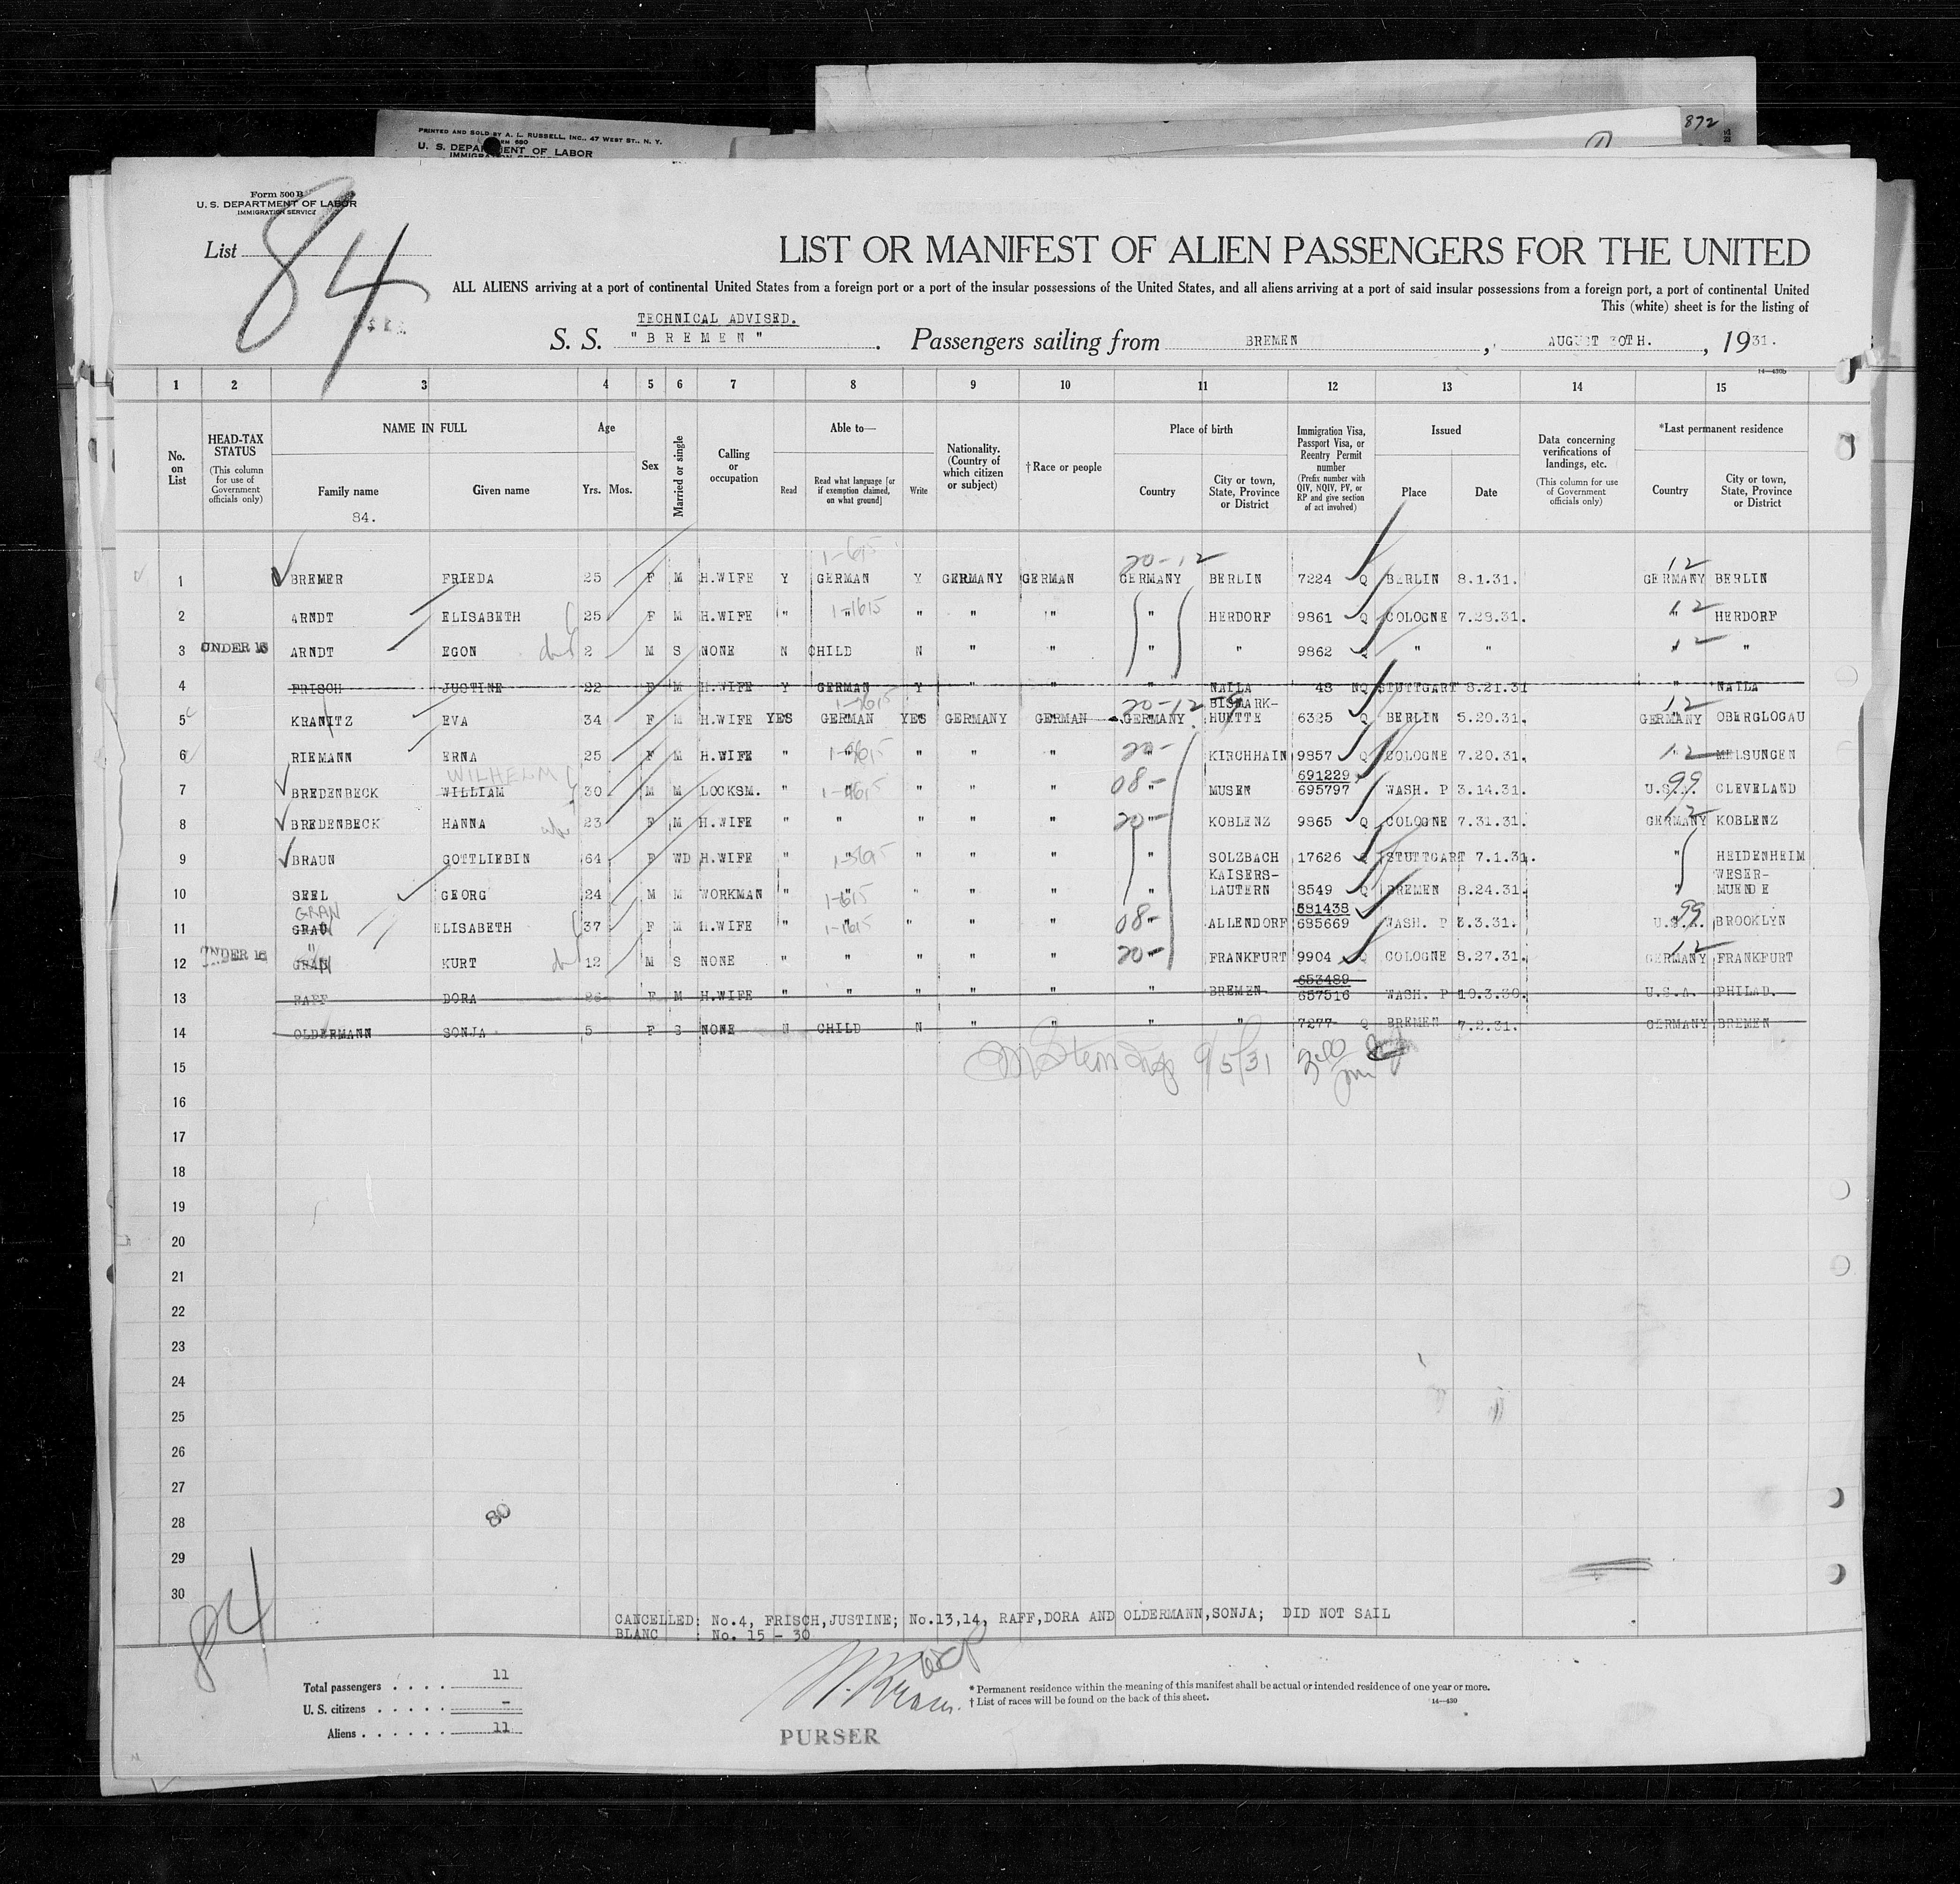 PRINTED AND SOLD BY A. L. RUSSELL, INC., 47 WEST ST., N. Y.
U. S. DEPARTMENT OF LABOR
872
Form 500 B
U. S. DEPARTMENT OF LABOR
IMMIGRATION SERVICE
List 84
LIST OR MANIFEST OF ALIEN PASSENGERS FOR THE UNITED
ALL ALIENS arriving at a port of continental United States from a foreign port or a port of the insular possessions of the United States, and all aliens arriving at a port of said insular possessions from a foreign port, a port of continental United
This (white) sheet is for the listing of
TECHNICAL ADVISED.
S. S. "BREMEN". Passengers sailing from BREMEN, AUGUST 30TH., 1931.
14—430b
1 2 3 4 5 6 7 8 9 10 11 12 13 14 15
No. on List
HEAD-TAX STATUS (This column for use of Government officials only)
NAME IN FULL
Family name Given name
84.
Age
Yrs. Mos.
Sex
Married or single
Calling or occupation
Able to—
Read
Read what language [or if exemption claimed, on what ground]
Write
Nationality. (Country of which citizen or subject)
†Race or people
Place of birth
Country
City or town, State, Province or District
Immigration Visa, Passport Visa, or Reentry Permit number (Prefix number with QIV, NQIV, PV, or RP and give section of act involved)
Issued
Place Date
Data concerning verifications of landings, etc. (This column for use of Government officials only)
*Last permanent residence
Country
City or town, State, Province or District
20-12 12
1 BREMER FRIEDA 25 F M H.WIFE Y GERMAN Y GERMANY GERMAN GERMANY BERLIN 7224 Q BERLIN 8.1.31. GERMANY BERLIN
2 ARNDT ELISABETH 25 F M H.WIFE " " " " " " HERDORF 9861 Q COLOGNE 7.28.31. " 12 HERDORF
3 UNDER 16 ARNDT EGON 2 M S NONE N CHILD N " " " " 9862 Q " " " 12 "
4 FRISCH JUSTINE 22 F M H.WIFE Y GERMAN Y " " " NAILA 48 NQ STUTTGART 8.21.31 " NAILA
20-12 12
5 KRANITZ EVA 34 F M H.WIFE YES GERMAN YES GERMANY GERMAN GERMANY BISMARK-HUETTE 6325 Q BERLIN 5.20.31. GERMANY OBERGLOGAU
6 RIEMANN ERNA 25 F M H.WIFE " " " " " 20- " KIRCHHAIN 9857 Q COLOGNE 7.20.31. " 12 MELSUNGEN
WILHELM 691229
7 BREDENBECK WILLIAM 30 M M LOCKSM. " " " " " 08- " MUSEN 695797 WASH. P 3.14.31. U.S.A. 99 CLEVELAND
8 BREDENBECK HANNA wife 23 F M H.WIFE " " " " " 20- " KOBLENZ 9865 Q COLOGNE 7.31.31. GERMANY 12 KOBLENZ
9 BRAUN GOTTLIEBIN 64 F WD H.WIFE " " " " " " SOLZBACH 17626 Q STUTTGART 7.1.31. " HEIDENHEIM
10 SEEL GEORG 24 M M WORKMAN " " " " " " KAISERS-LAUTERN 8549 Q BREMEN 8.24.31. " WESER-MUENDE
GRAN 681438
11 GRAU ELISABETH 37 F M H.WIFE " " " " " 08- " ALLENDORF 685669 WASH. P 3.3.31. U.S.A. 99 BROOKLYN
"
12 UNDER 16 GRAU KURT 12 M S NONE " " " " " 20- " FRANKFURT 9904 Q COLOGNE 8.27.31. GERMANY 12 FRANKFURT
653489
13 RAFF DORA 26 F M H.WIFE " " " " " " BREMEN 657516 WASH. P 10.3.30. U.S.A. PHILAD.
14 OLDERMANN SONJA 5 F S NONE N CHILD N " " " " 7277 Q BREMEN 7.2.31. GERMANY BREMEN
15 9/5/31
16
17
18
19
20
21
22
23
24
25
26
27
28 80
29
30
84
CANCELLED: No.4, FRISCH,JUSTINE; No.13,14, RAFF,DORA AND OLDERMANN,SONJA; DID NOT SAIL
BLANC : No. 15 - 30
Total passengers . . . . 11
U. S. citizens . . . . . -
Aliens . . . . . . 11
PURSER
* Permanent residence within the meaning of this manifest shall be actual or intended residence of one year or more.
† List of races will be found on the back of this sheet.
14—430